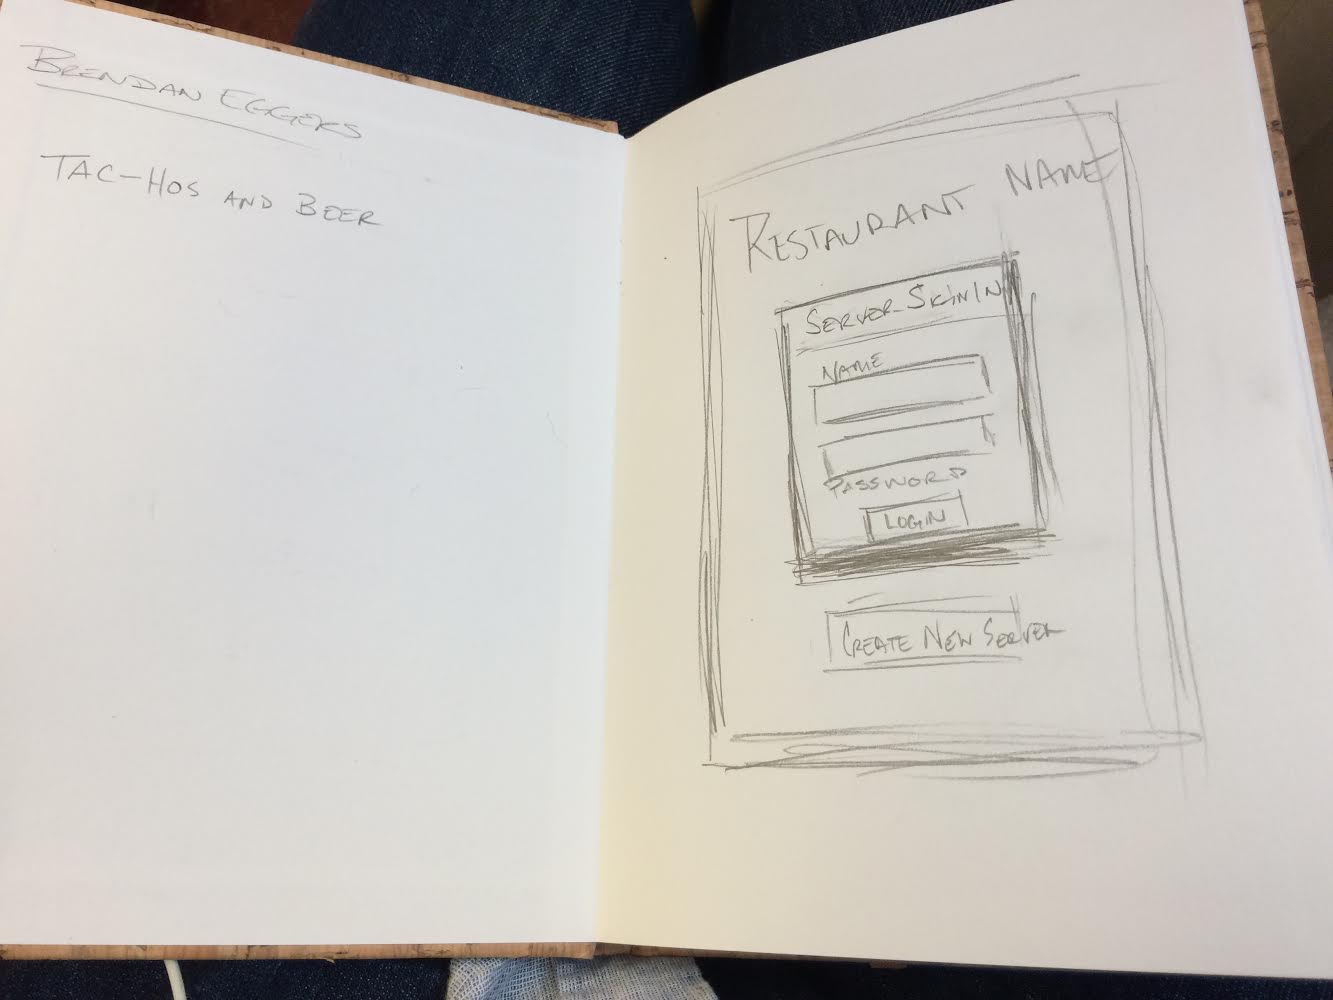 BRENDAN EGGERS
TAC-HOS AND BEER
RESTAURANT NAME
SERVER SIGN IN
NAME
PASSWORD
LOGIN
CREATE NEW SERVER